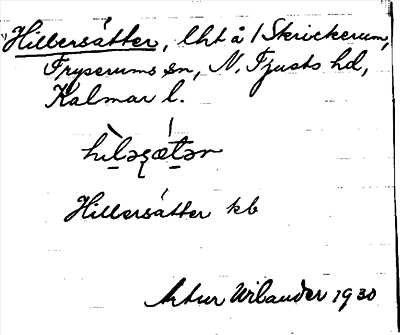 "Hillersätter, lht å / Skrickerum,
Fryserums sn, N. Tjusts hd,
Kalmar l.
Hillersätter kb
Artur Wilander 1930